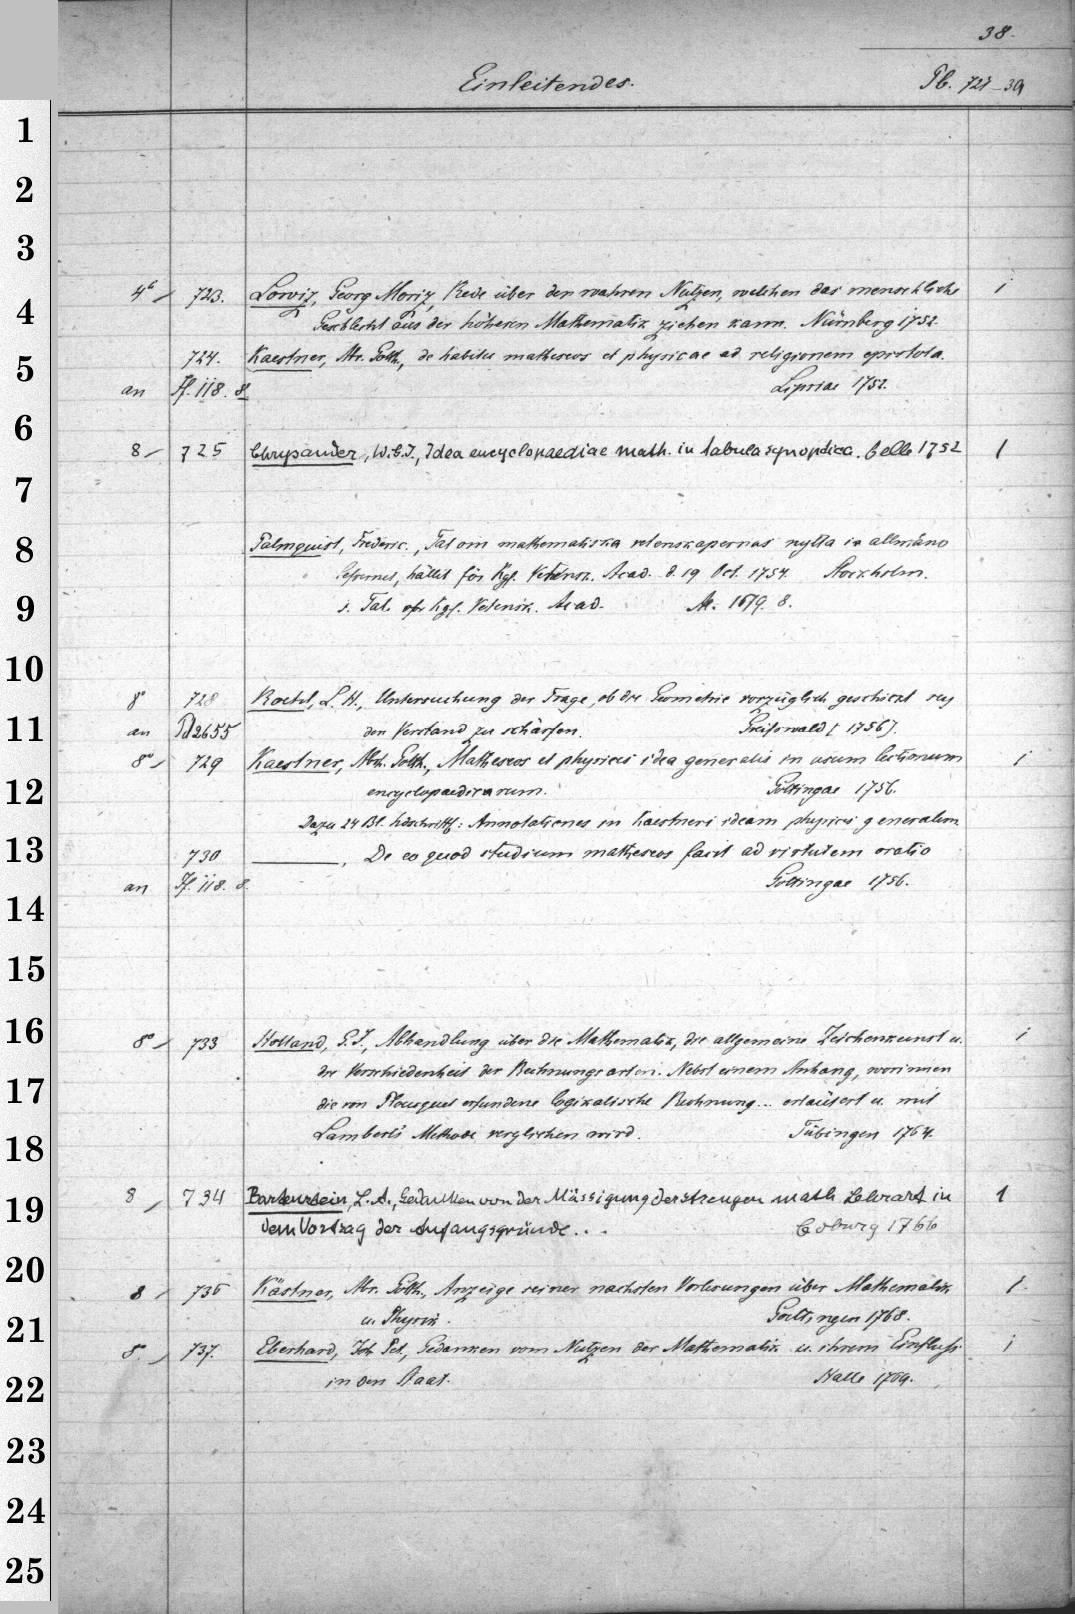 38.
Einleitendes. Pb. 721-39
1
2
3
4° 723. Lowiz, Georg Moriz, Rede über den wahren Nutzen, welchen das menschliche 1
4
Geschlecht aus der höheren Mathematik ziehen kann. Nürnberg 1752.
724. Kaestner, Abr. Gotth., de habitu matheseos et physicae ad religionem epistola.
5
an Pf. 118. 8. Lipsiae 1752.
6
8 725 Chrysander, W.C.J., Idea encyclopaediae math. in tabula synoptica. Celle 1752 1
7
8
Palmquist, Frederic., Tal om mathematiska vetenskapernas nytta i allmäno
hållit för Kgl. Vetensk. Acad. d. 19 Oct. 1754. Stockholm.
9
s. Tal. Kgl. Vetensk. Acad. Ac. 1679. 8.
10
8° 728 Roehl, L. H., Untersuchung der Frage, ob die Geometrie vorzüglich geschickt sey
11
an Pd 2655 den Verstand zu schärfen. Greifswald [1756].
8° 729 Kaestner, Abr. Gotth., Matheseos et physices idea generalis in usum lectionum 1
12
encyclopaedicarum. Göttingae 1756.
Dazu 24 Bl. hdschriftl: Annotationes in Kaestneri ideam physices generalem
13
730 ———, De eo quod studium matheseos facit ad virtutem oratio
an Pf. 118. 8. Gottingae 1756.
14
15
16
8° 733 Holland, G.J., Abhandlung über die Mathematik, die allgemeine Zeichenkunst u. 1
die Verschiedenheit der Rechnungsarten. Nebst einem Anhang, worinnen
17
die von Ploucquet erfundene logikalische Rechnung... erläutert u. mit
Lambert's Methode verglichen wird. Tübingen 1764.
18
8 734 Bartenstein, L. A., Gedanken von der Mässigung der strengen math Lehrart in 1
19
dem Vortrag der Anfangsgründe... Coburg 1766
20
8 736 Kästner, Abr. Gotth., Anzeige seiner nächsten Vorlesungen über Mathematik 1
21
u. Physik. Goettingen 1768.
8. 737. Eberhard, Joh. Pet., Gedanken vom Nutzen der Mathematik u. ihrem Einfluss 1
22
in den Staat. Halle 1769.
23
24
25